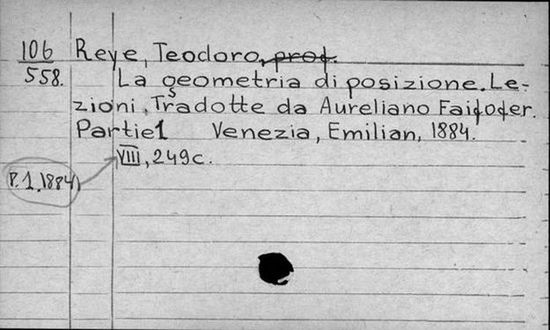 106 Reye, Teodoro, prof.
558. La geometria di posizione. Le-
zioni, Tradotte da Aureliano Faifofer.
Partie 1 Venezia, Emilian, 1884.
VIII, 249c.
P. 1. 1884